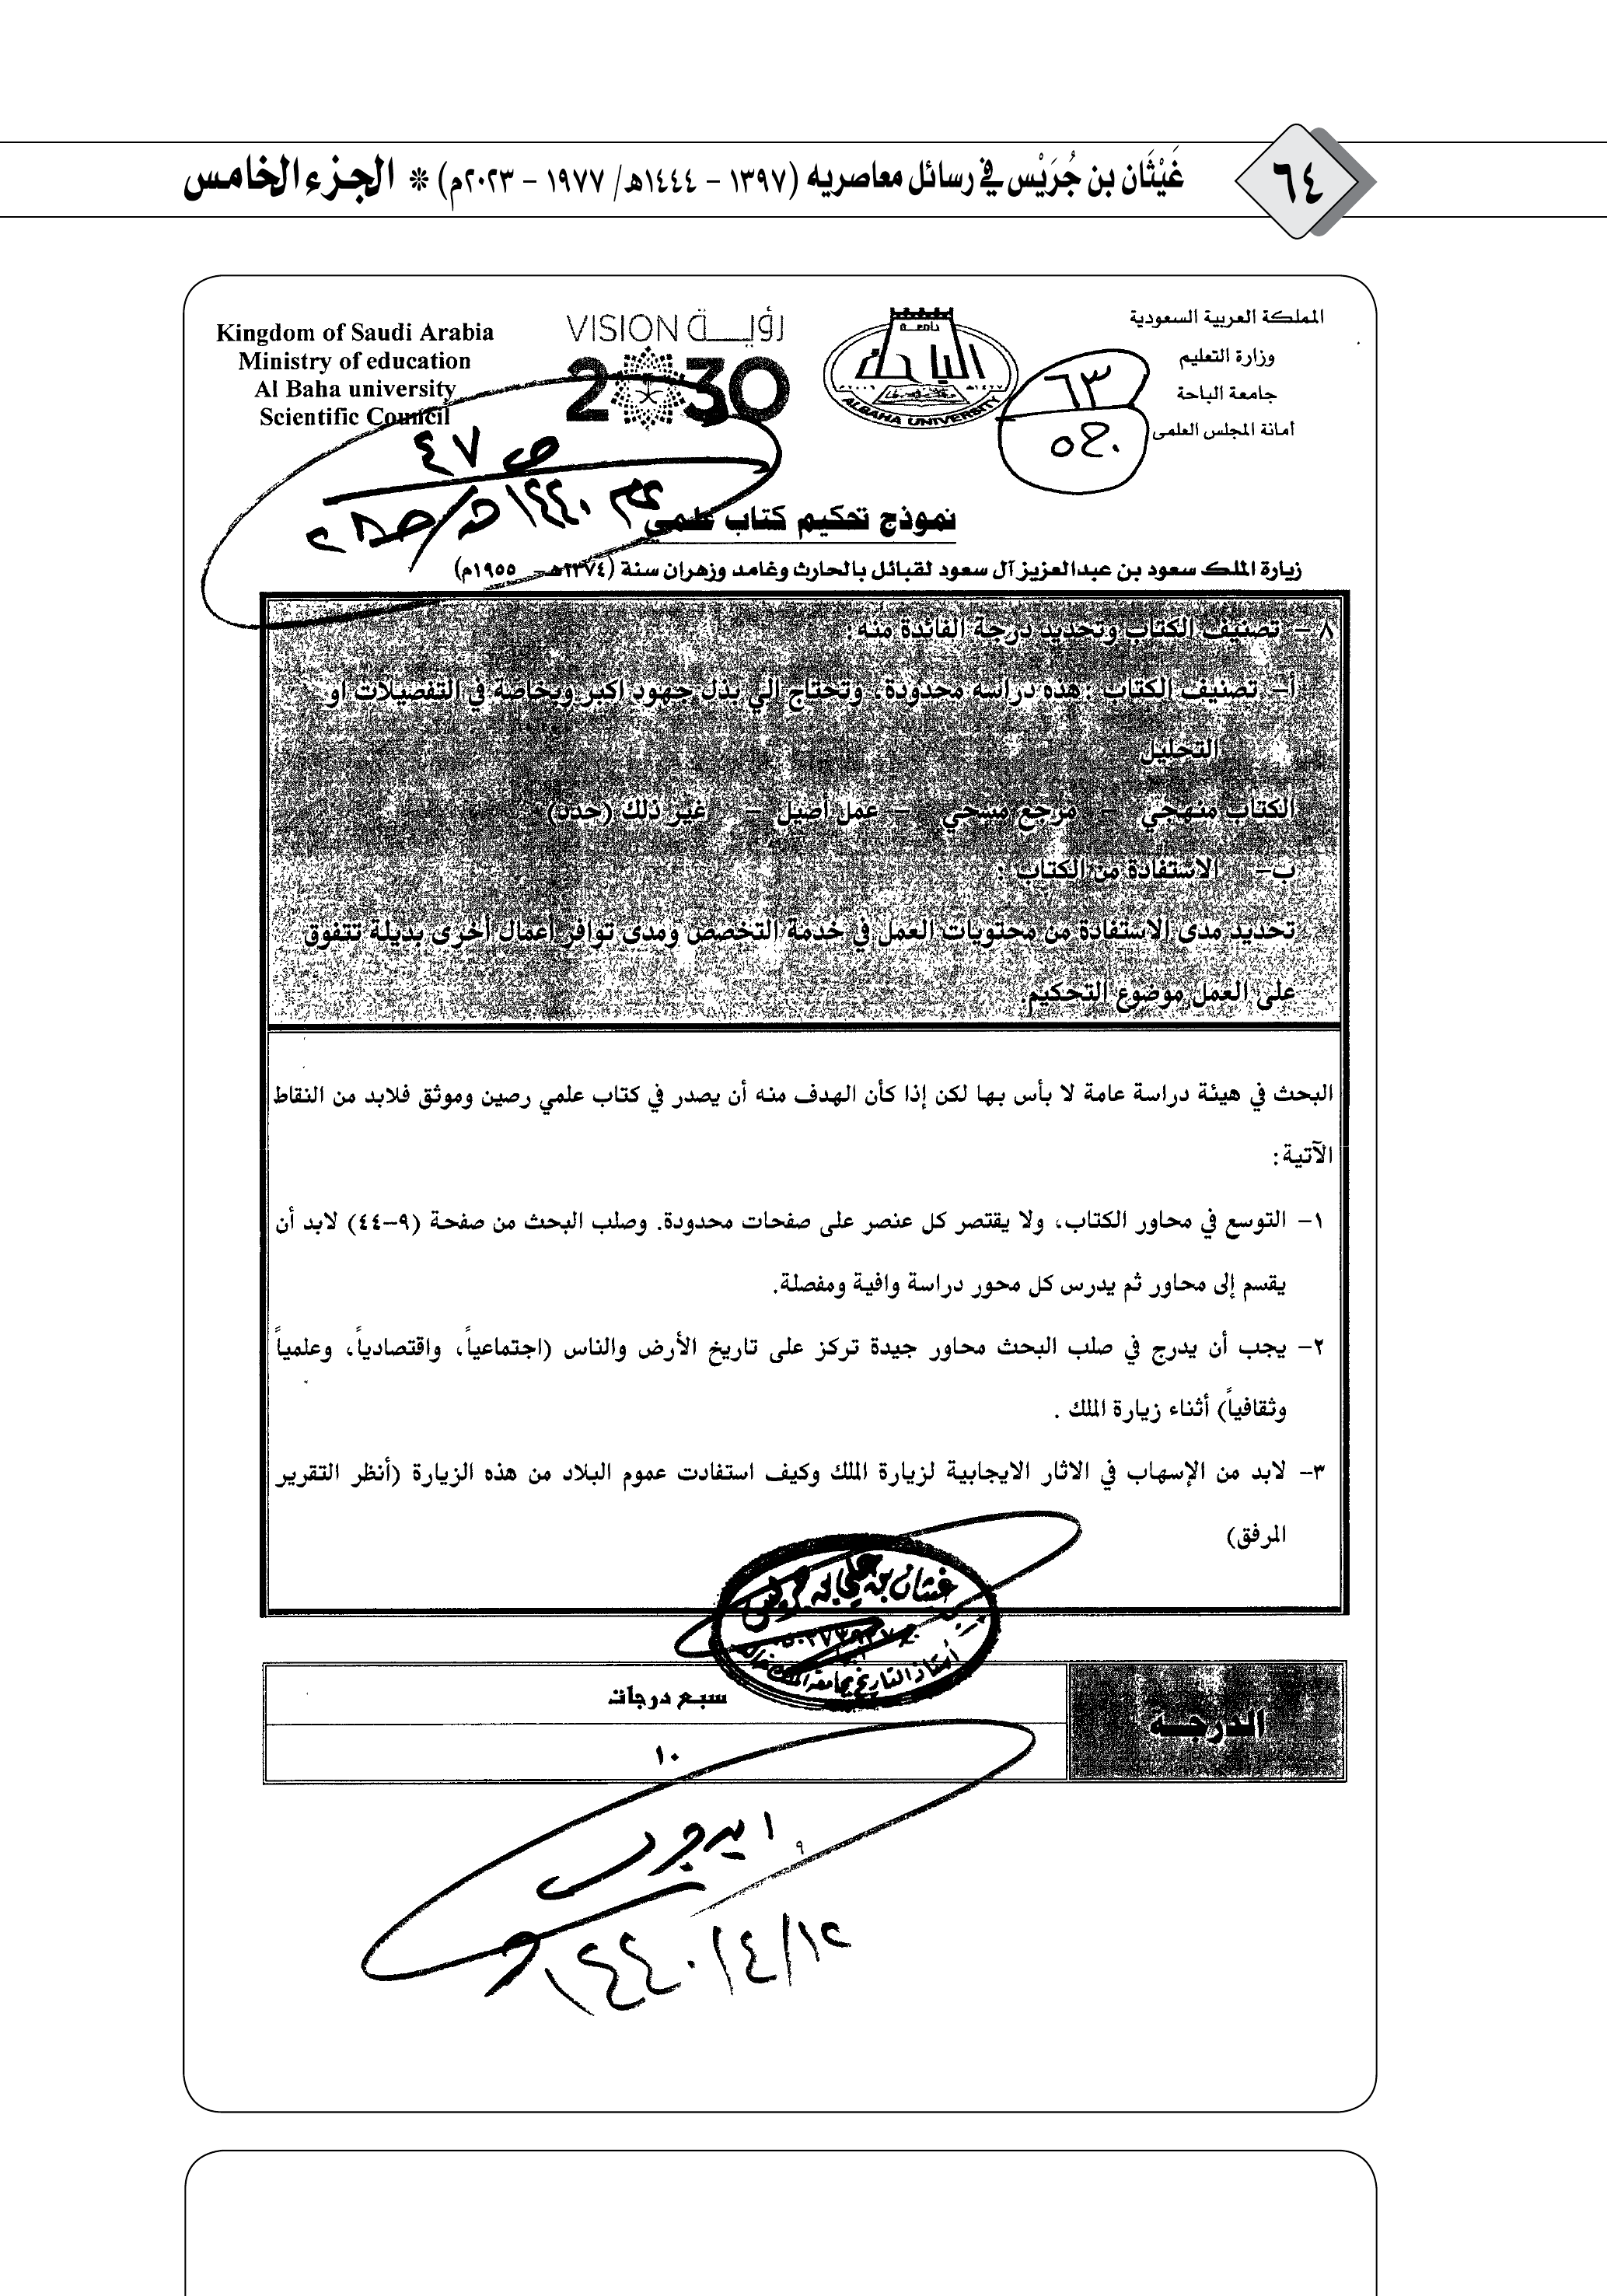 ٦٤
غَيْثَان بن جُرَيْس في رسائل معاصريه (١٣٩٧ - ١٤٤٤هـ/ ١٩٧٧ - ٢٠٢٣م) * الجزء الخامس
المملكة العربية السعودية
وزارة التعليم
جامعة الباحة
أمانة المجلس العلمي
جامعة
الباحة
ALBAHA UNIVERSITY
VISION رؤية
2030
Kingdom of Saudi Arabia
Ministry of education
Al Baha university
Scientific Council
٦٣
ص ٤٧
نموذج تحكيم كتاب علمي
زيارة الملك سعود بن عبدالعزيز آل سعود لقبائل بالحارث وغامد وزهران سنة (١٣٧٤هـ- ١٩٥٥م)
٨ - تصنيف الكتاب وتحديد درجة الفائدة منه:
أ- تصنيف الكتاب : هذه دراسه محدودة، وتحتاج الي بذل جهود اكبر وبخاصة في التفصيلات او
التحليل
الكتاب منهجي - مرجع مسحي - عمل اصيل - غير ذلك (حدد)
ب- الاستفادة من الكتاب :
تحديد مدى الاستفادة من محتويات العمل في خدمة التخصص ومدى توافر أعمال أخرى بديلة تتفوق
على العمل موضوع التحكيم
البحث في هيئة دراسة عامة لا بأس بها لكن إذا كأن الهدف منه أن يصدر في كتاب علمي رصين وموثق فلابد من النقاط
الآتية:
١- التوسع في محاور الكتاب، ولا يقتصر كل عنصر على صفحات محدودة. وصلب البحث من صفحة (٩-٤٤) لابد أن
يقسم إلى محاور ثم يدرس كل محور دراسة وافية ومفصلة.
٢- يجب أن يدرج في صلب البحث محاور جيدة تركز على تاريخ الأرض والناس (اجتماعياً، واقتصادياً، وعلمياً
وثقافياً) أثناء زيارة الملك .
٣- لابد من الإسهاب في الاثار الايجابية لزيارة الملك وكيف استفادت عموم البلاد من هذه الزيارة (أنظر التقرير
المرفق)
غيثان بن علي بن جريس
أستاذ التاريخ بجامعة الملك خالد
الدرجة
سبع درجات
١٠
١٤٤٠/٤/١٢